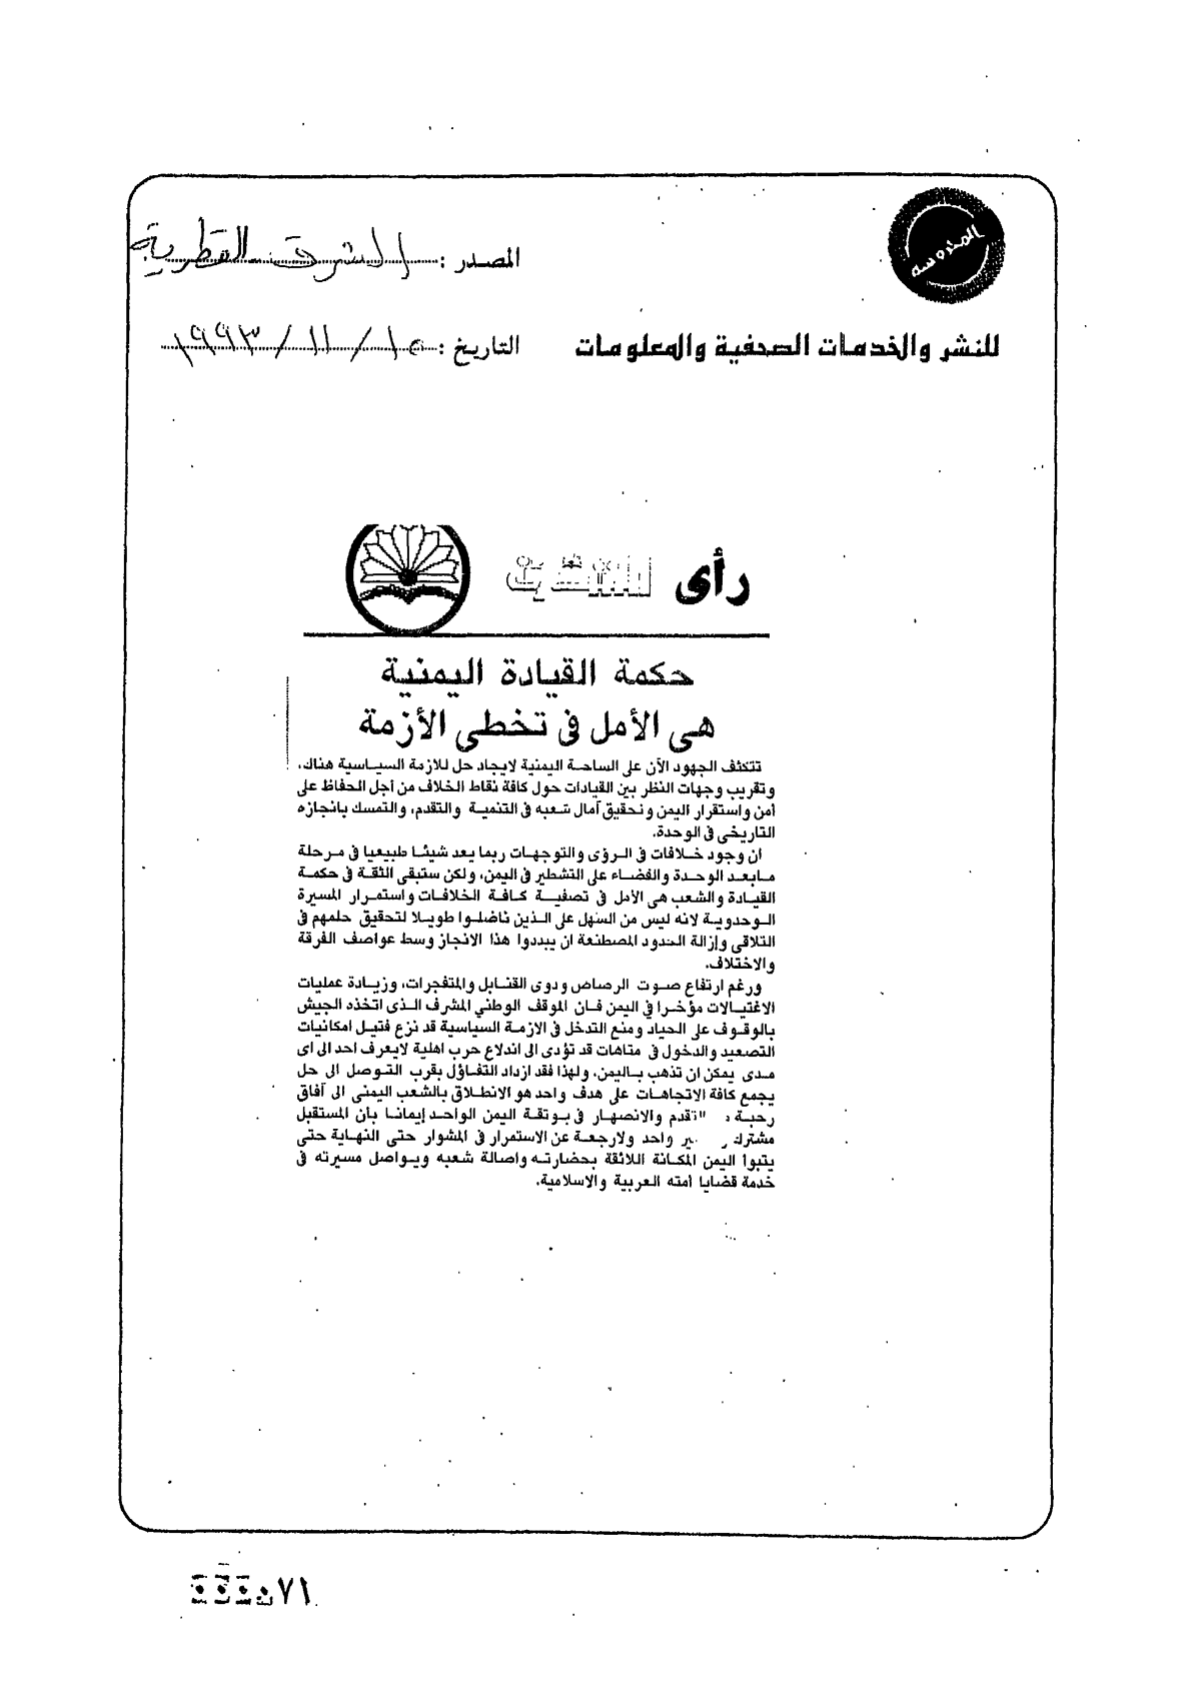 المحروسة
المصدر : الشرق القطرية
للنشر والخدمات الصحفية والمعلومات
التاريخ : ١٥ / ١١ / ١٩٩٣
رأى الشرق
حكمة القيادة اليمنية
هى الأمل فى تخطى الأزمة
تتكثف الجهود الآن على الساحة اليمنية لايجاد حل للازمة السياسية هناك،
وتقريب وجهات النظر بين القيادات حول كافة نقاط الخلاف من أجل الحفاظ على
أمن واستقرار اليمن وتحقيق آمال شعبه فى التنمية والتقدم، والتمسك بانجازه
التاريخى فى الوحدة.
ان وجود خلافات فى الرؤى والتوجهات ربما يعد شيئا طبيعيا فى مرحلة
مابعد الوحدة والقضاء على التشطير فى اليمن، ولكن ستبقى الثقة فى حكمة
القيادة والشعب هى الأمل فى تصفية كافة الخلافات واستمرار المسيرة
الوحدوية لانه ليس من السهل على الذين ناضلوا طويلا لتحقيق حلمهم فى
التلاقى وإزالة الحدود المصطنعة ان يبددوا هذا الانجاز وسط عواصف الفرقة
والاختلاف.
ورغم ارتفاع صوت الرصاص ودوى القنابل والمتفجرات، وزيادة عمليات
الاغتيالات مؤخرا في اليمن فان الموقف الوطني المشرف الذى اتخذه الجيش
بالوقوف على الحياد ومنع التدخل فى الازمة السياسية قد نزع فتيل امكانيات
التصعيد والدخول فى متاهات قد تؤدى الى اندلاع حرب اهلية لايعرف احد الى اى
مدى يمكن ان تذهب باليمن، ولهذا فقد ازداد التفاؤل بقرب التوصل الى حل
يجمع كافة الاتجاهات على هدف واحد هو الانطلاق بالشعب اليمنى الى آفاق
رحبة والانصهار فى بوتقة اليمن الواحد إيمانا بأن المستقبل
مشترك واحد ولارجعة عن الاستمرار فى المشوار حتى النهاية حتى
يتبوأ اليمن المكانة اللائقة بحضارته واصالة شعبه ويواصل مسيرته فى
خدمة قضايا أمته العربية والاسلامية.